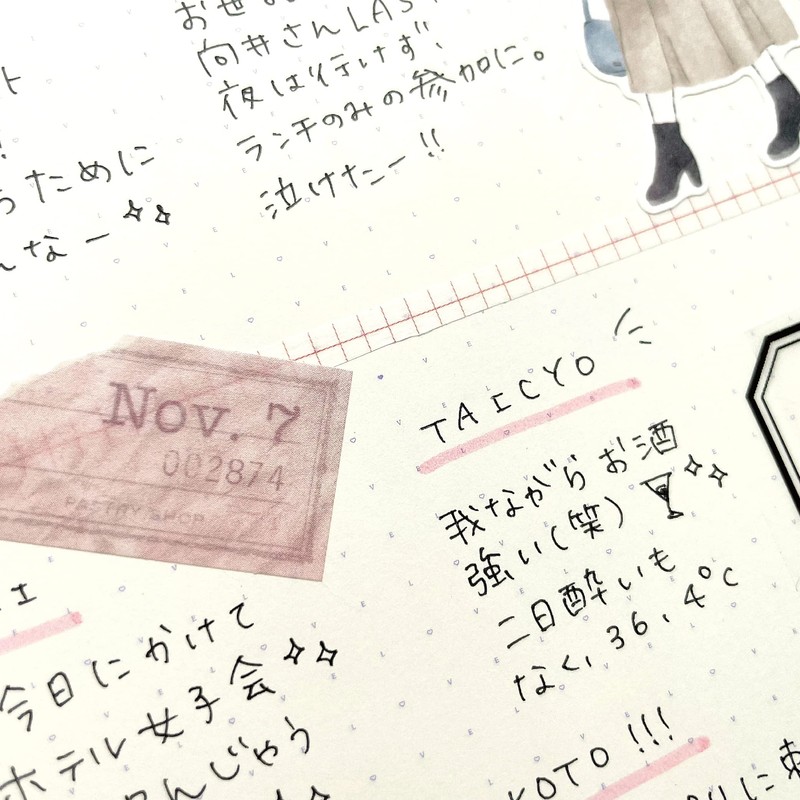 お世
向井さんLAS
夜は行けず、
ランチのみの参加に。
泣けたー!!
ト
!
うために
んなー
Nov. 7
002874
PASTRY SHOP
TAICYO
我ながらお酒
強い(笑)
二日酔いも
なく、36.4℃
今日にかけて
ホテル女子会
んじゃう
KOTO!!!
りに刺